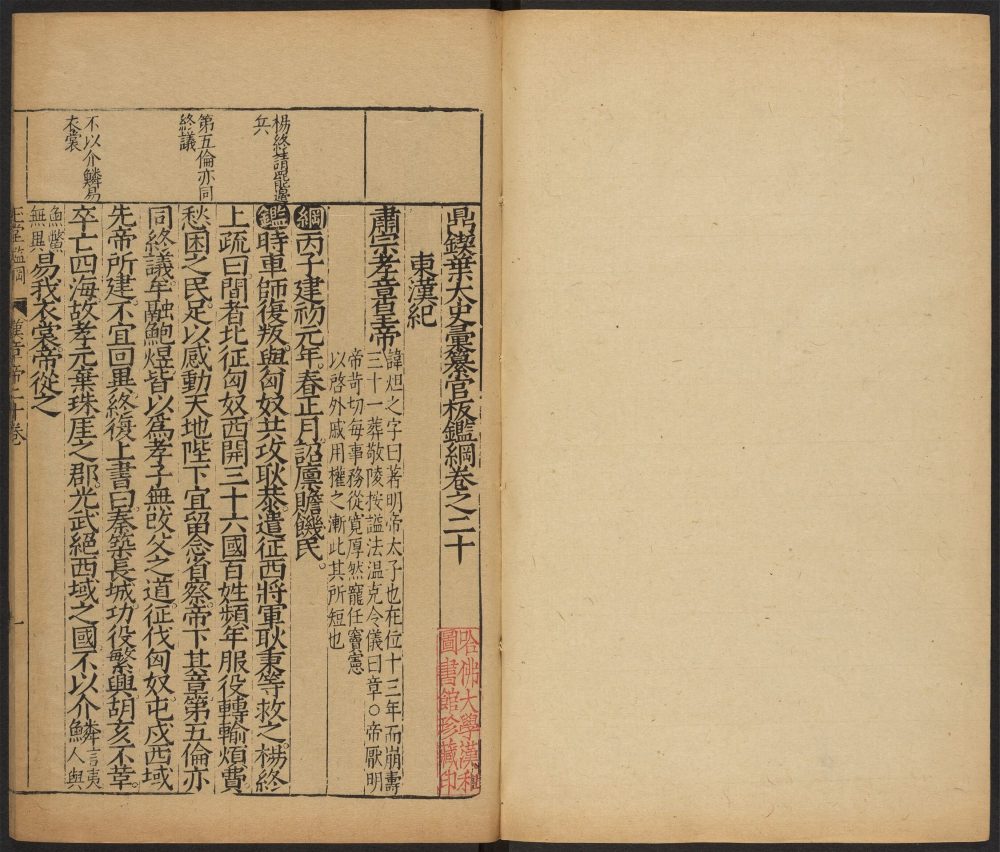 鼎鍥葉太史彙纂官板鑑綱卷之二十
東漢紀
肅宗孝章皇帝
諱炟之字曰著明帝太子也在位十三年而崩壽
三十一葬敬陵按謚法温克令儀曰章○帝厭明
帝苛切每事務從寬厚然寵任竇憲
以啓外戚用權之漸此其所短也
綱丙子建初元年春正月詔廩贍饑民。
楊終請罷邊
兵
鑑時車師復叛與匈奴共攻耿恭遣征西將軍耿秉等救之楊終
上疏曰間者北征匈奴西開三十六國百姓頻年服役轉輸煩費
第五倫亦同
終議
愁困之民足以感動天地陛下宜留念省察帝下其章第五倫亦
同終議牟融鮑煜皆以爲孝子無改父之道征伐匈奴屯戍西域
先帝所建不宜回異終復上書曰秦築長城功役繁興胡亥不革
不以介鱗易
衣裳
卒亡四海故孝元棄珠厓之郡光武絕西域之國不以介鱗
言夷
人與
魚鱉
無異
易我衣裳帝從之
漢章帝二十卷
一
哈佛大學漢和
圖書館珍藏印